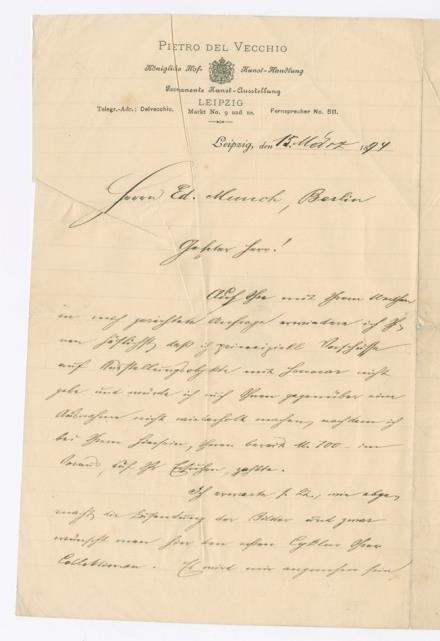 PIETRO DEL VECCHIO
Königliche Hof- Kunst-Handlung
Permanente Kunst-Ausstellung
LEIPZIG
Telegr.-Adr.: Delvecchio. Markt No. 9 und 10. Fernsprecher No. 511.
Leipzig, den 15. März 1894
Herrn Ed. Munch, Berlin
Geehrter Herr!
Auf Ihre mit Ihrem
an mich gerichtete Anfrage erwidere ich
höflichst, daß ich principiell Vorschüsse
auf Ausstellungsobjekte mit nicht
gebe und würde ich auch Ihnen gegenüber eine
Ausnahme nicht wiederholt machen, nachdem ich
bei Ihrem Hiersein, Ihnen bereits M. 100 - im
Voraus, auf Ihr Ersuchen, zahlte.
Ich erwarte wie abge-
macht die Zusendung der Bilder und zwar
wünscht man hier den Cyklus Ihrer
Collektionen. Es wird mir angenehm sein